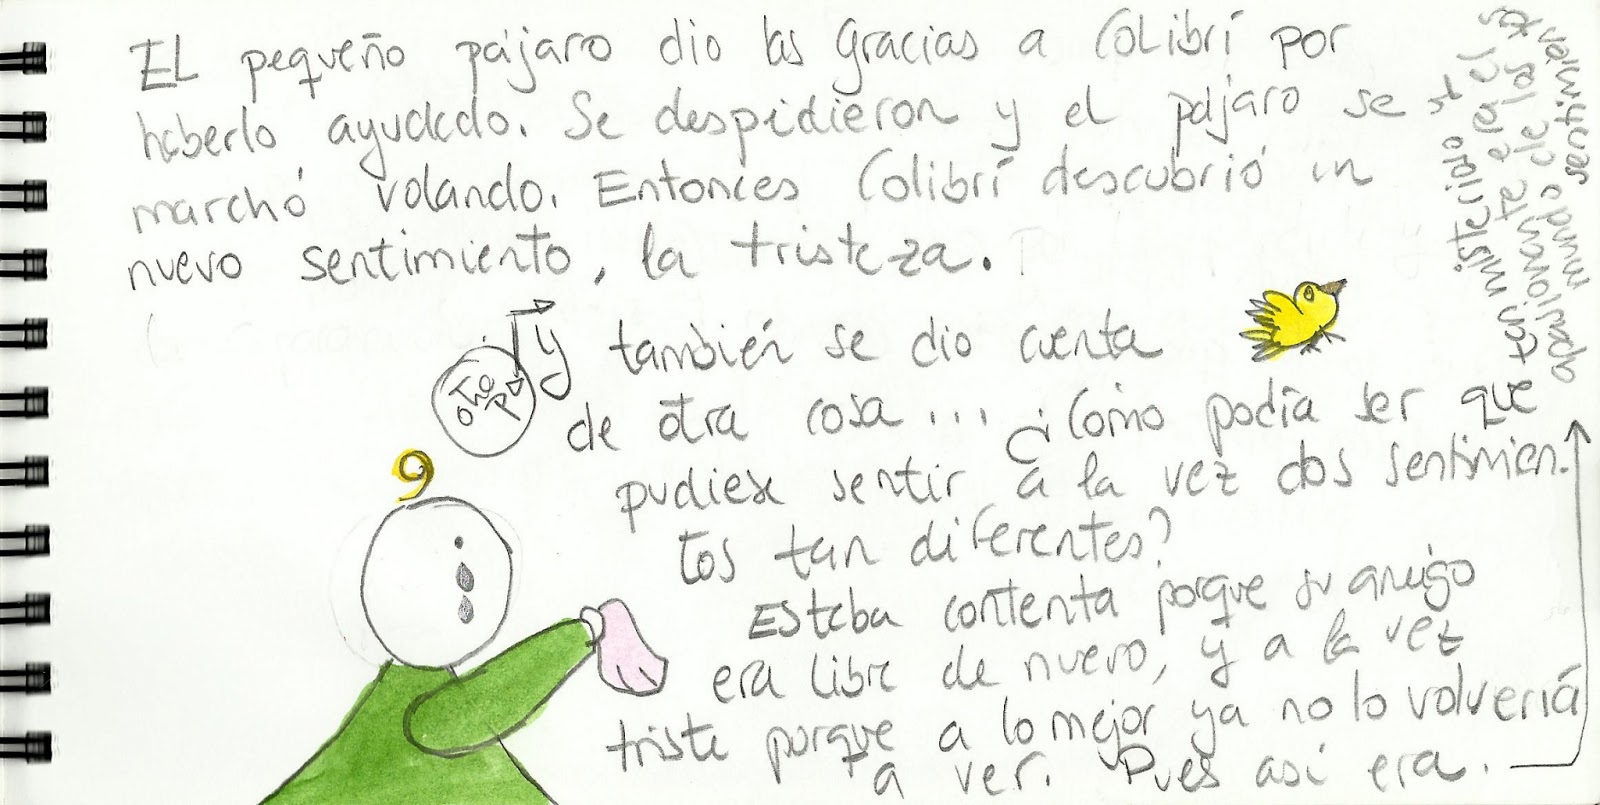 El pequeño pájaro dio las gracias a Colibrí por
haberlo ayudado. Se despidieron y el pájaro se
marchó volando. Entonces Colibrí descubrió un
nuevo sentimiento, la tristeza.
y también se dio cuenta
de otra cosa... ¿Cómo podía ser que
pudiese sentir a la vez dos sentimien-
tos tan diferentes?
Estaba contenta porque su amigo
era libre de nuevo, y a la vez
triste porque a lo mejor ya no lo volvería
a ver. Pues así era.
tan misterioso y
apasionante era el
mundo de los